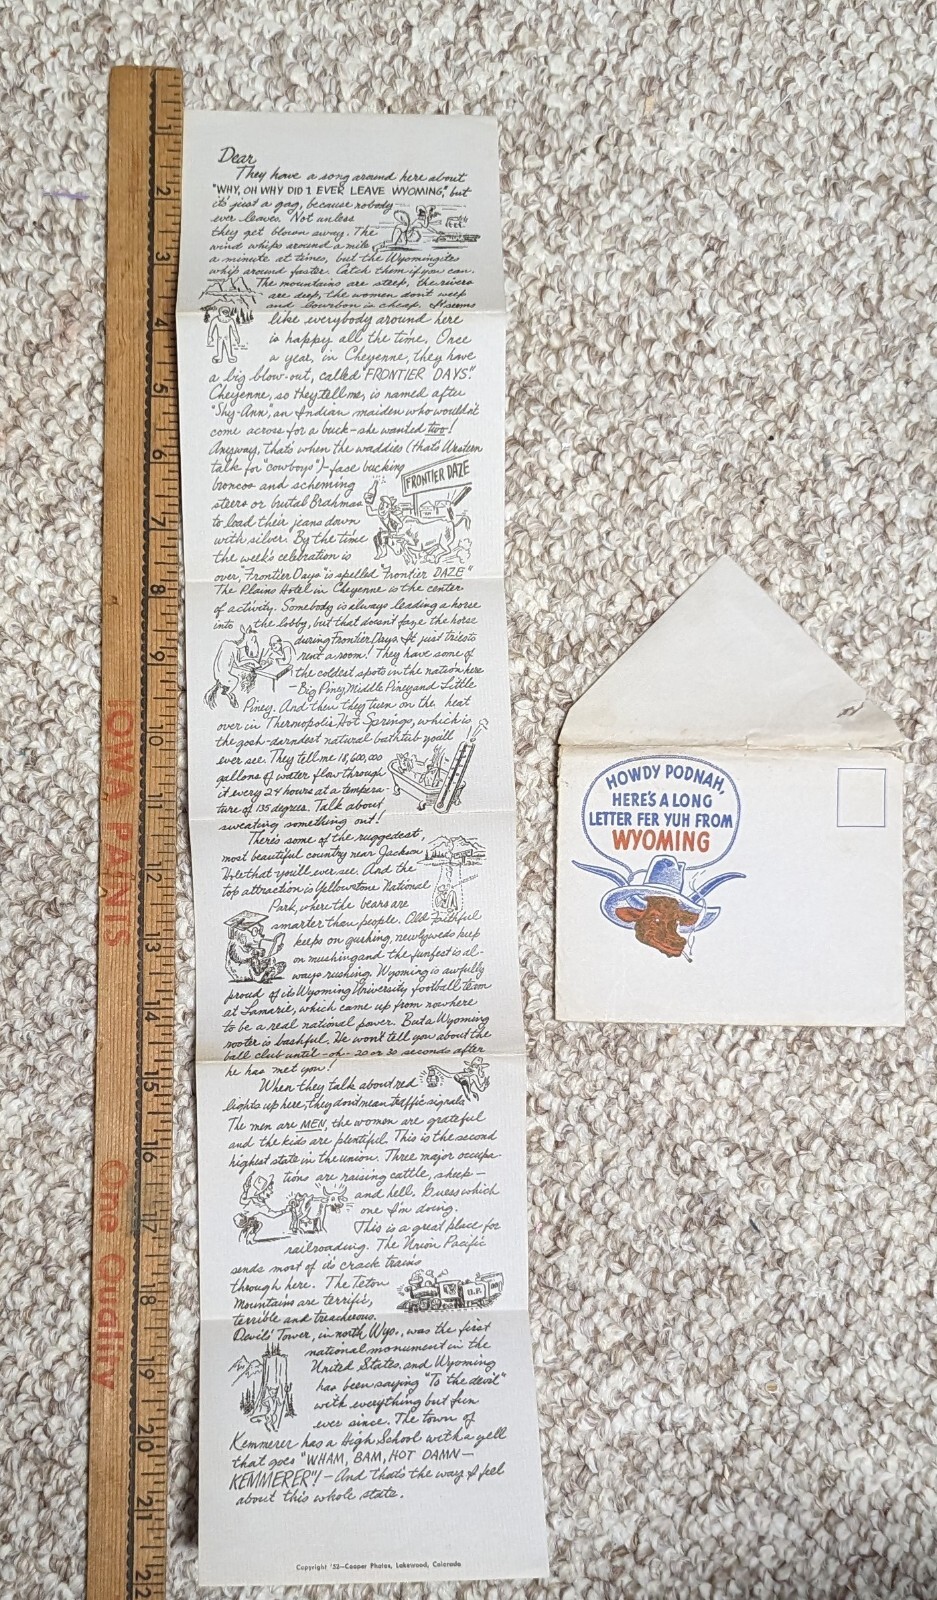 Dear
They have a song around here about
"WHY, OH WHY DID I EVER LEAVE WYOMING," but
it's just a gag, because nobody
ever leaves. Not unless
they get blown away. The
wind whips around a mile
a minute at times, but the Wyomingites
whip around faster. Catch them if you can.
The mountains are steep, the rivers
are deep, the women don't weep
and bourbon is cheap. It seems
like everybody around here
is happy all the time. Once
a year, in Cheyenne, they have
a big blow-out, called "FRONTIER DAYS."
Cheyenne, so they tell me, is named after
"Shy-Ann", an Indian maiden who wouldn't
come across for a buck—she wanted two!
Anyway, that's when the waddies (that's Western
talk for "cowboys")—face bucking
broncos and scheming
steers or brutal Brahmas
to load their jeans down
with silver. By the time
the week's celebration is
over "Frontier Days" is spelled "Frontier DAZE"
FRONTIER DAZE
The Plains Hotel in Cheyenne is the center
of activity. Somebody is always leading a horse
into the lobby, but that doesn't faze the horse
during Frontier Days. It just tries to
rent a room! They have some of
the coldest spots in the nation here
—Big Piney, Middle Piney and Little
Piney. And then they turn on the heat
over in Thermopolis Hot Springs, which is
the gosh-darndest natural bathtub you'll
ever see. They tell me 18,600,000
gallons of water flow through
it every 24 hours at a tempera-
ture of 135 degrees. Talk about
sweating something out!
There's some of the ruggedest,
most beautiful country near Jackson
Hole that you'll ever see. And the
top attraction is Yellowstone National
Park, where the bears are
smarter than people. Old Faithful
keeps on gushing, newlyweds keep
on mushing and the funfest is al-
ways rushing. Wyoming is awfully
proud of its Wyoming University football team
at Lamarie, which came up from nowhere
to be a real national power. But a Wyoming
rooter is bashful. He won't tell you about the
ball club until—oh—20 or 30 seconds after
he has met you!
When they talk about red
lights up here, they don't mean traffic signals
The men are MEN, the women are grateful
and the kids are plentiful. This is the second
highest state in the union. Three major occupa-
tions are raising cattle, sheep—
and hell. Guess which
one I'm doing.
This is a great place for
railroading. The Union Pacific
sends most of its crack trains
through here. The Teton
Mountains are terrific,
terrible and treacherous.
U.P.
Devil' Tower, in north Wyo., was the first
national monument in the
United States, and Wyoming
has been saying "To the devil"
with everything but fun
ever since. The town of
Kemmerer has a High School with a yell
that goes "WHAM, BAM, HOT DAMN—
KEMMERER"!—And that's the way I feel
about this whole state.
Copyright '52—Cooper Photos, Lakewood, Colorado
HOWDY PODNAH,
HERE'S A LONG
LETTER FER YUH FROM
WYOMING
IOWA PAINTS
One Quality
1
2
3
4
5
6
7
8
9
10
11
12
13
14
15
16
17
18
19
20
21
22